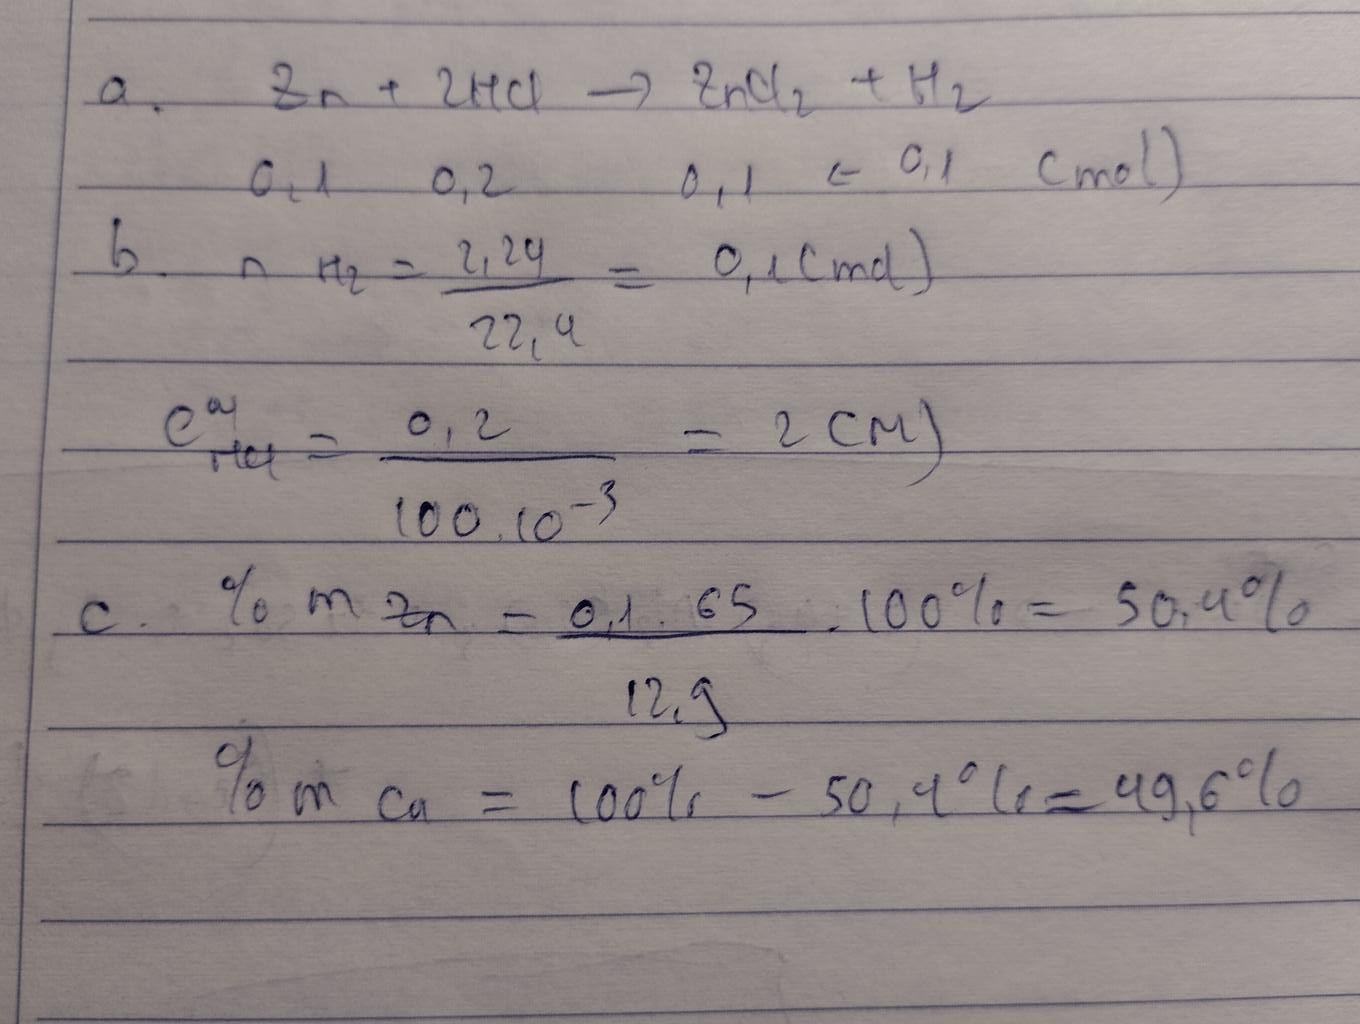 a. Zn + 2HCl → ZnCl2 + H2
0,1 0,2 0,1 ← 0,1 (mol)
b. n H2 = 2,24 / 22,4 = 0,1 (mol)
CM HCl = 0,2 / 100.10^-3 = 2 (M)
c. % m Zn = 0,1.65 / 12,9 . 100% = 50,4%
% m Cu = 100% - 50,4% = 49,6%